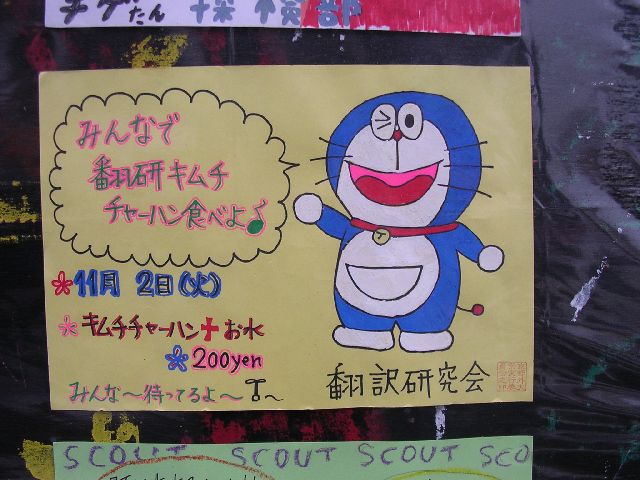 チゲたん
みんなで
翻研キムチ
チャーハン食べよ♪
11月 2日(火)
キムチチャーハン+お水
200yen
みんな〜待ってるよ〜
翻訳研究会
SCOUT SCOUT SCOUT SCO